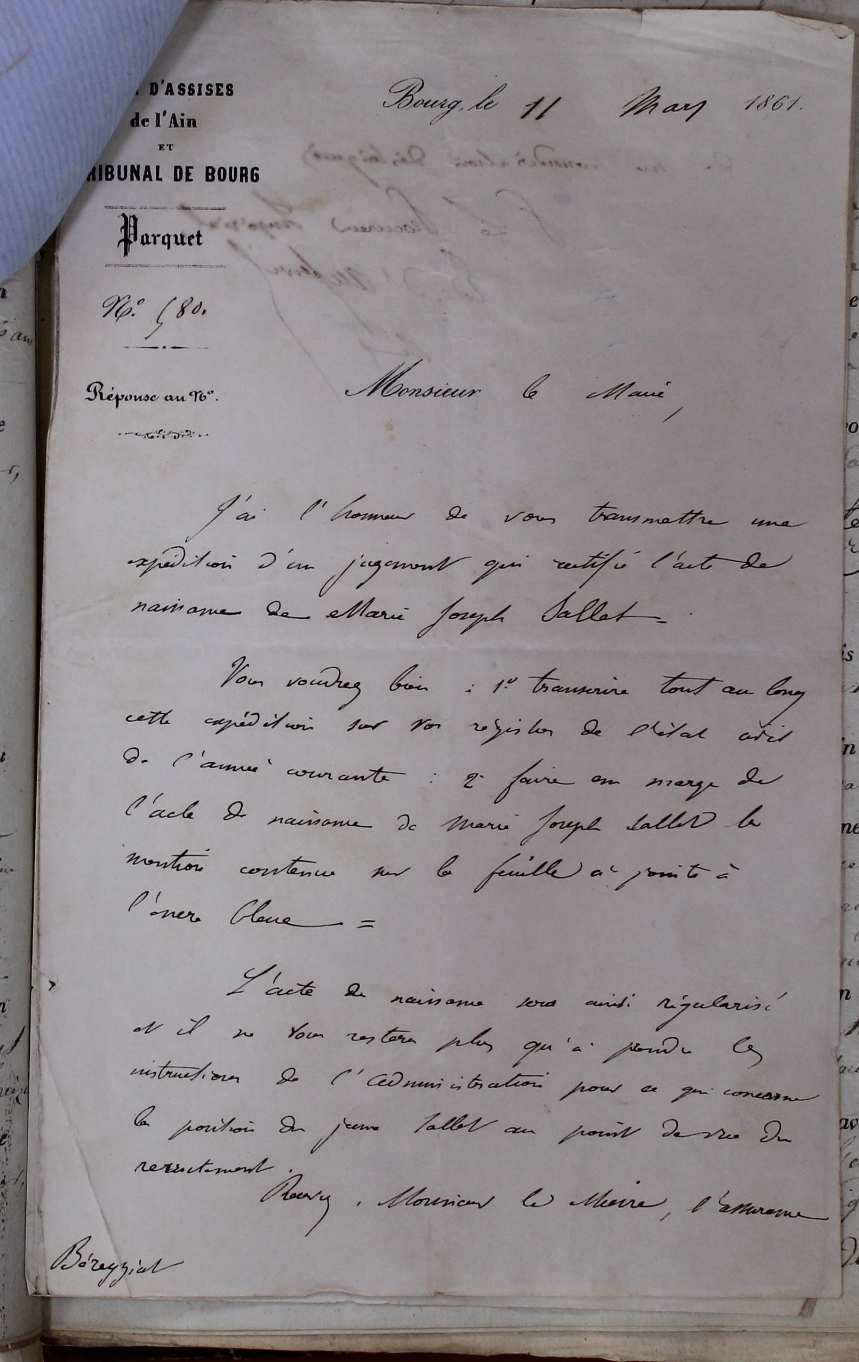 D'ASSISES
de l'Ain
ET
TRIBUNAL DE BOURG
Parquet
N° 580.
Réponse au N°.
Bourg, le 11 Mars 1861.
Monsieur le Maire,
J'ai l'honneur de vous transmettre une
expédition d'un jugement qui rectifie l'acte de
naissance de Marie Joseph Sallet =
Vous voudrez bien : 1° transcrire tout au long
cette expédition sur vos registres de l'état civil
de l'année courante : 2° faire en marge de
l'acte de naissance de Marie Joseph Sallet la
mention contenue sur la feuille ci jointe à
l'encre bleue =
L'acte de naissance sera ainsi régularisé
et il ne vous restera plus qu'à prendre les
instructions de l'administration pour ce qui concerne
la position du jeune Sallet au point de vue du
recrutement.
Recevez, Monsieur le Maire, l'assurance
Béreyziat